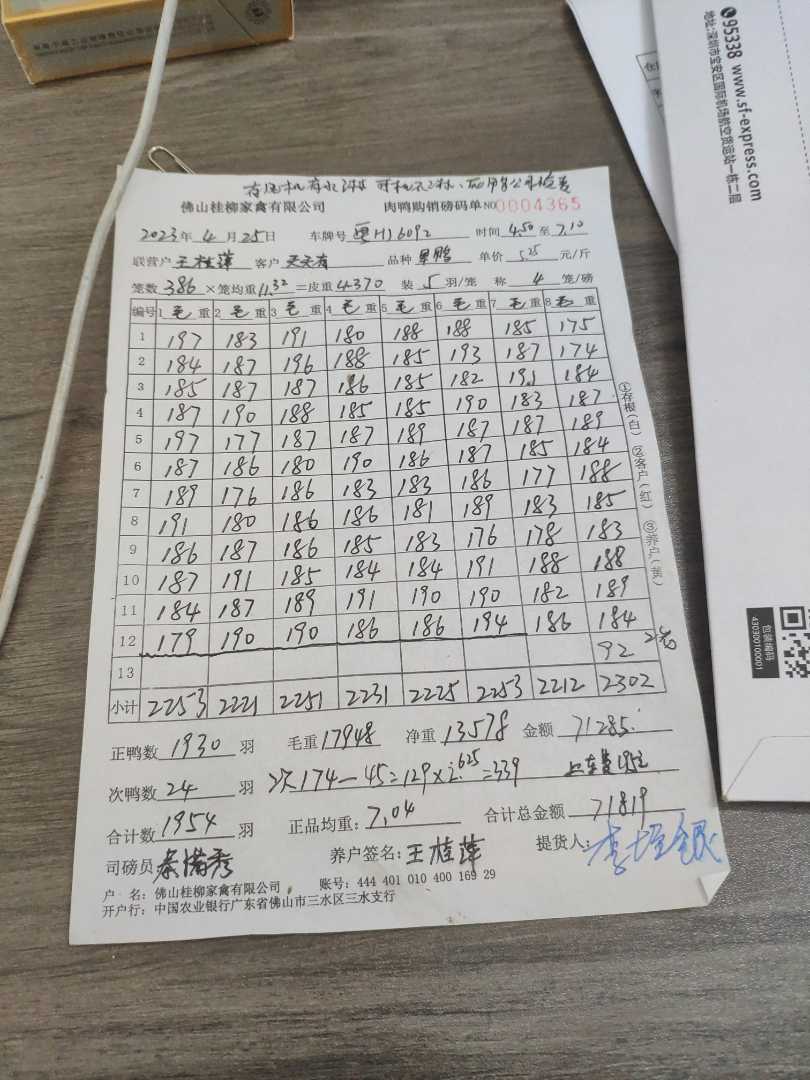 95338 www.sf-express.com
地址:深圳市宝安区国际机场航空货运站一栋二层
佛山桂柳家禽有限公司 肉鸭购销磅码单 NO 0004365
2023年4月25日 车牌号 粤HJ6092 时间 4.50 至 7.10
联营户 王桂萍 客户 天天有 品种 单价 5.25 元/斤
笼数 386 ×笼均重 11.32 =皮重 4370 装 5 羽/笼 称 4 笼/磅
编号 1 毛 重 2 毛 重 3 毛 重 4 毛 重 5 毛 重 6 毛 重 7 毛 重 8 毛 重
1 197 183 191 180 188 188 185 175
2 184 187 196 188 185 193 187 174
3 185 187 187 186 185 182 191 184
4 187 190 188 185 185 190 183 187
5 197 177 187 187 189 187 187 189
6 187 186 180 190 186 187 185 184
7 189 176 186 183 183 186 177 188
8 191 180 186 186 181 189 183 185
9 186 187 186 185 183 176 178 183
10 187 191 185 184 184 191 188 188
11 184 187 189 191 190 190 182 189
12 179 190 190 186 186 194 186 184
13 92
小计 2253 2221 2251 2231 2225 2253 2212 2302
①存根(白) ②客户(红) ③养户(黄)
正鸭数 1930 羽 毛重 17948 净重 13578 金额 71285.
次鸭数 24 羽 次174-45=129×2.625=339
合计数 1954 羽 正品均重: 7.04 合计总金额 71819
司磅员 养户签名: 王桂萍 提货人:
户 名: 佛山桂柳家禽有限公司 账号: 444 401 010 400 169 29
开户行: 中国农业银行广东省佛山市三水区三水支行
包装编码
430300100001